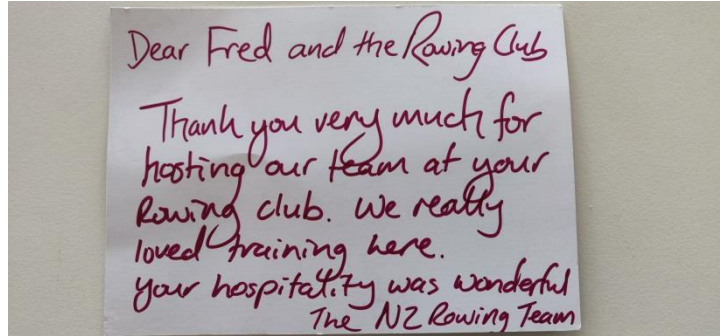 Dear Fred and the Rowing Club
Thank you very much for
hosting our team at your
Rowing club. We really
loved training here.
Your hospitality was wonderful
The NZ Rowing Team